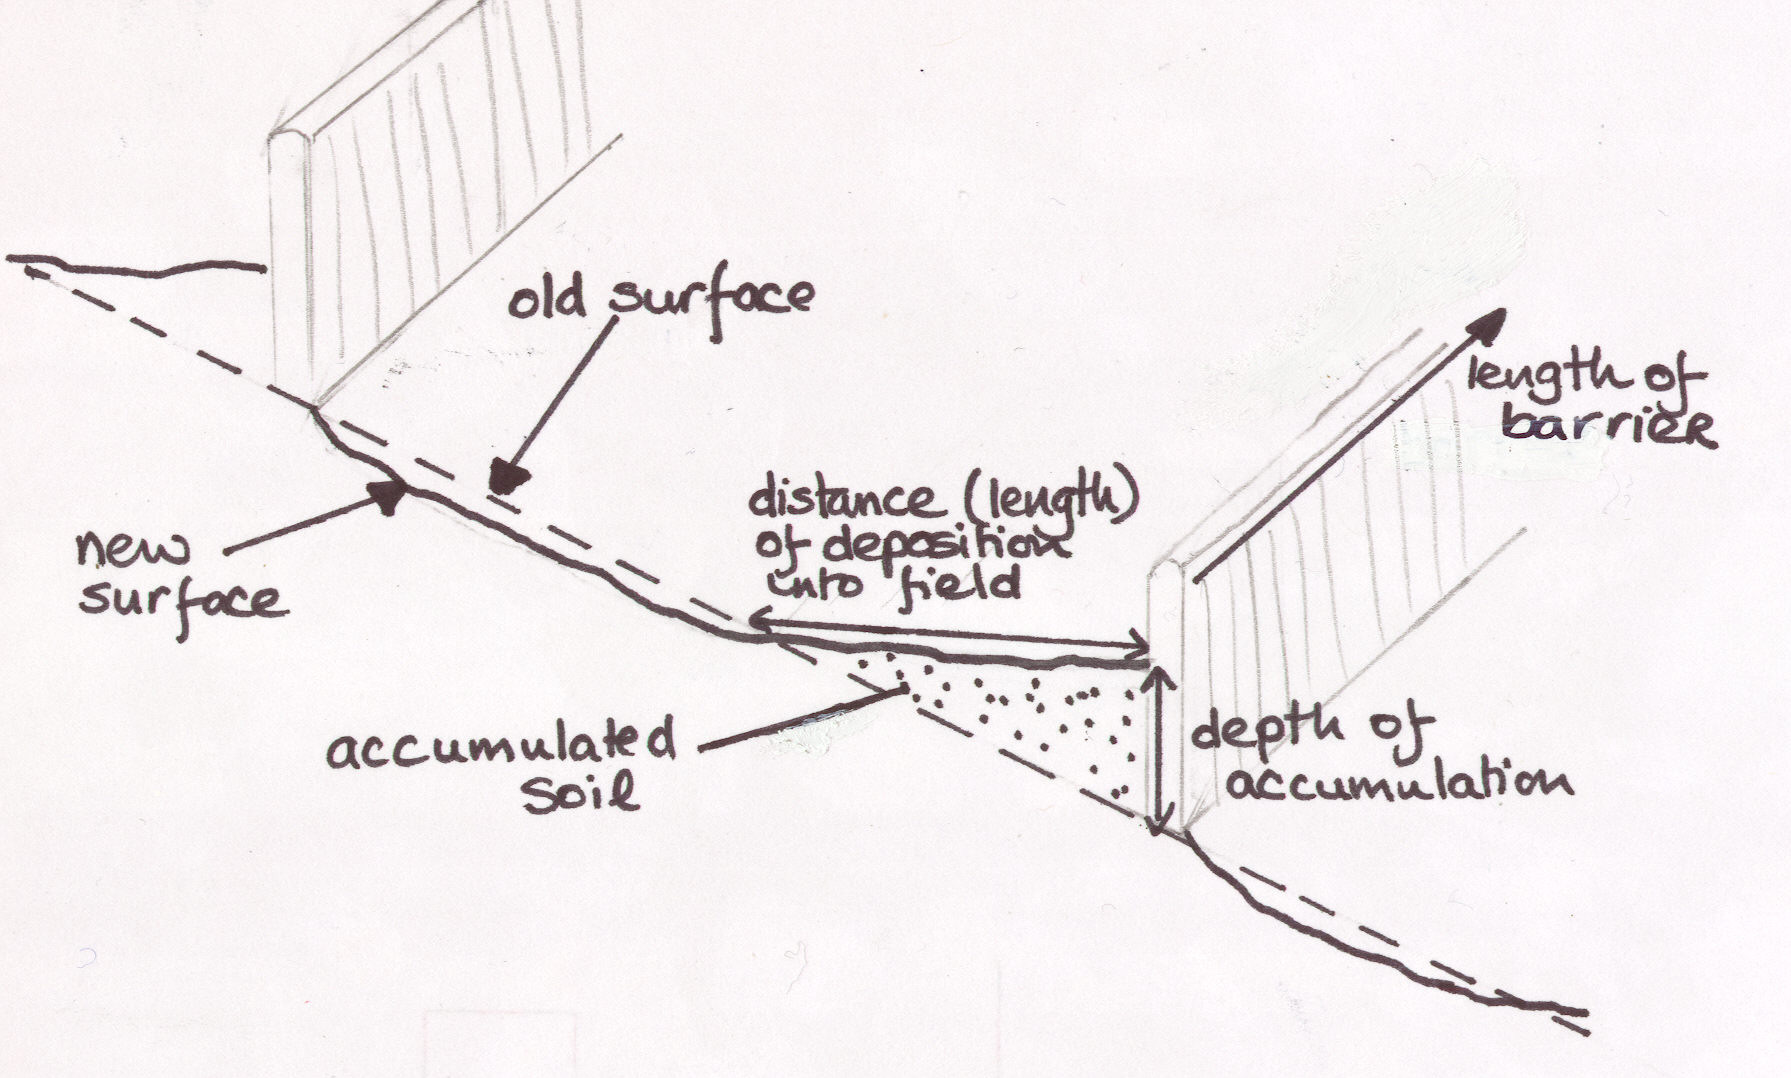 old surface
length of
barrier
distance (length)
of deposition
into field
new
surface
accumulated
soil
depth of
accumulation